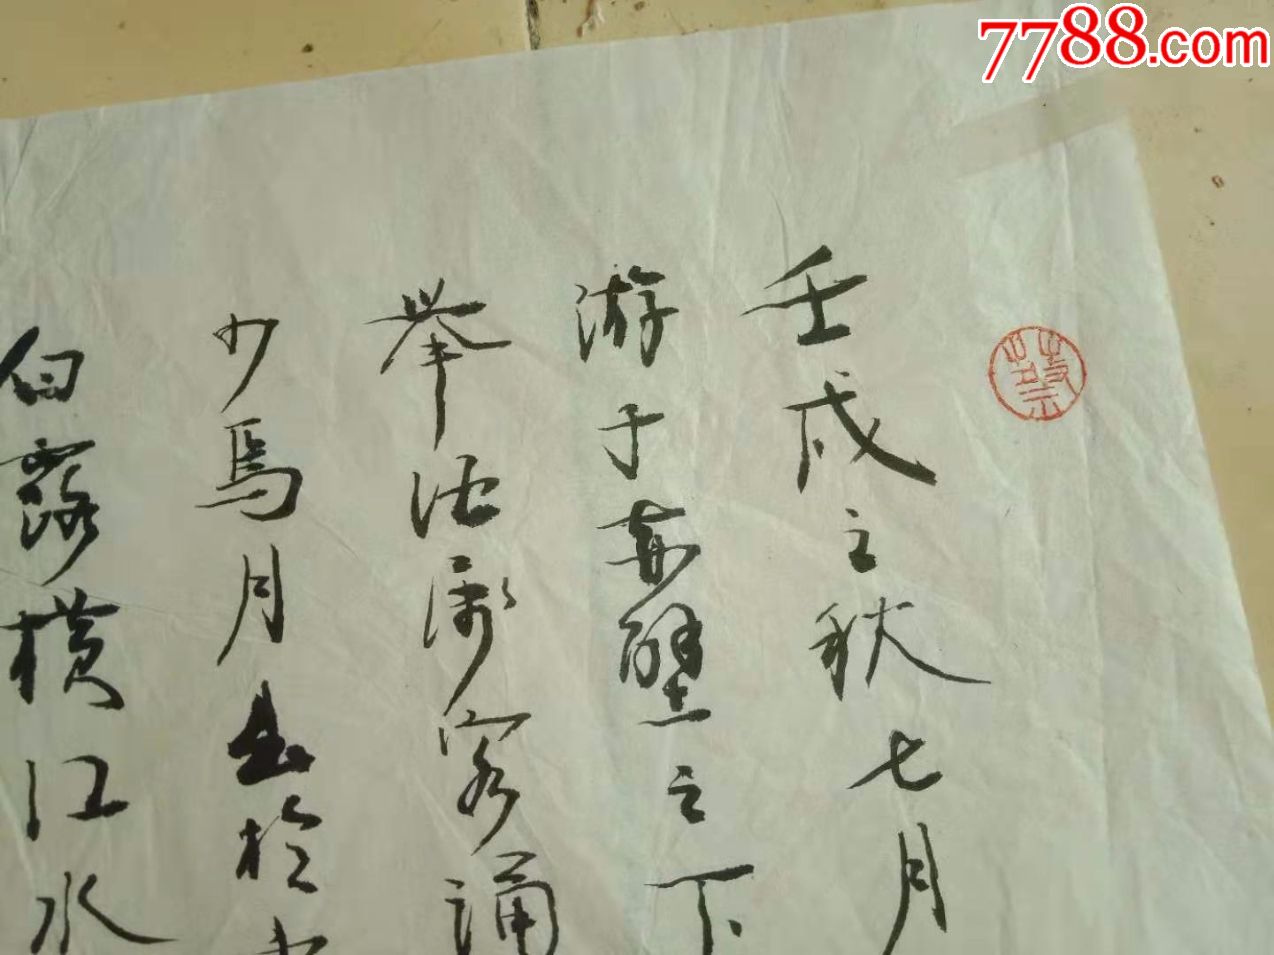 7788.com
壬戌之秋七月
游于赤壁之下
举酒属客诵
少焉月出於
白露横江水